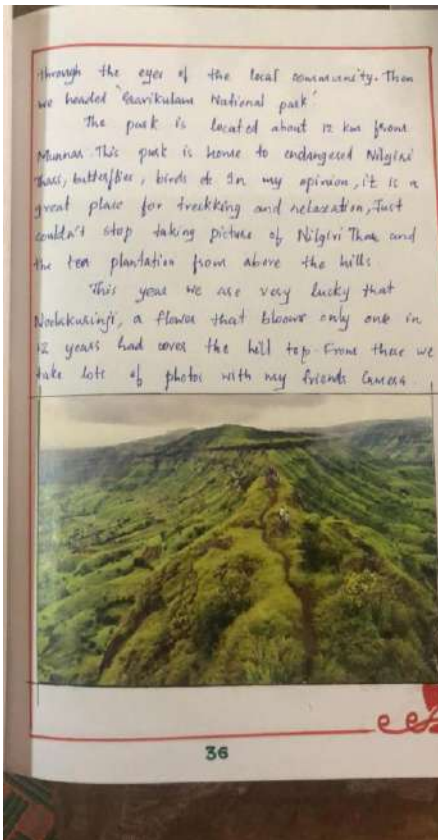 through the eyes of the local community. Then
we headed 'Eravikulam National park'
The park is located about 12 km from
Munnar. This park is home to endangered Nilgiri
Thars, butterflies, birds etc In my opinion, it is a
great place for treckking and relaxation, Just
couldn't stop taking picture of Nilgiri Thar and
the tea plantation from above the hills.
This year we are very lucky that
Neelakurinji, a flower that blooms only one in
12 years had cover the hill top. From there we
take lots of photos with my friends Camera.
36